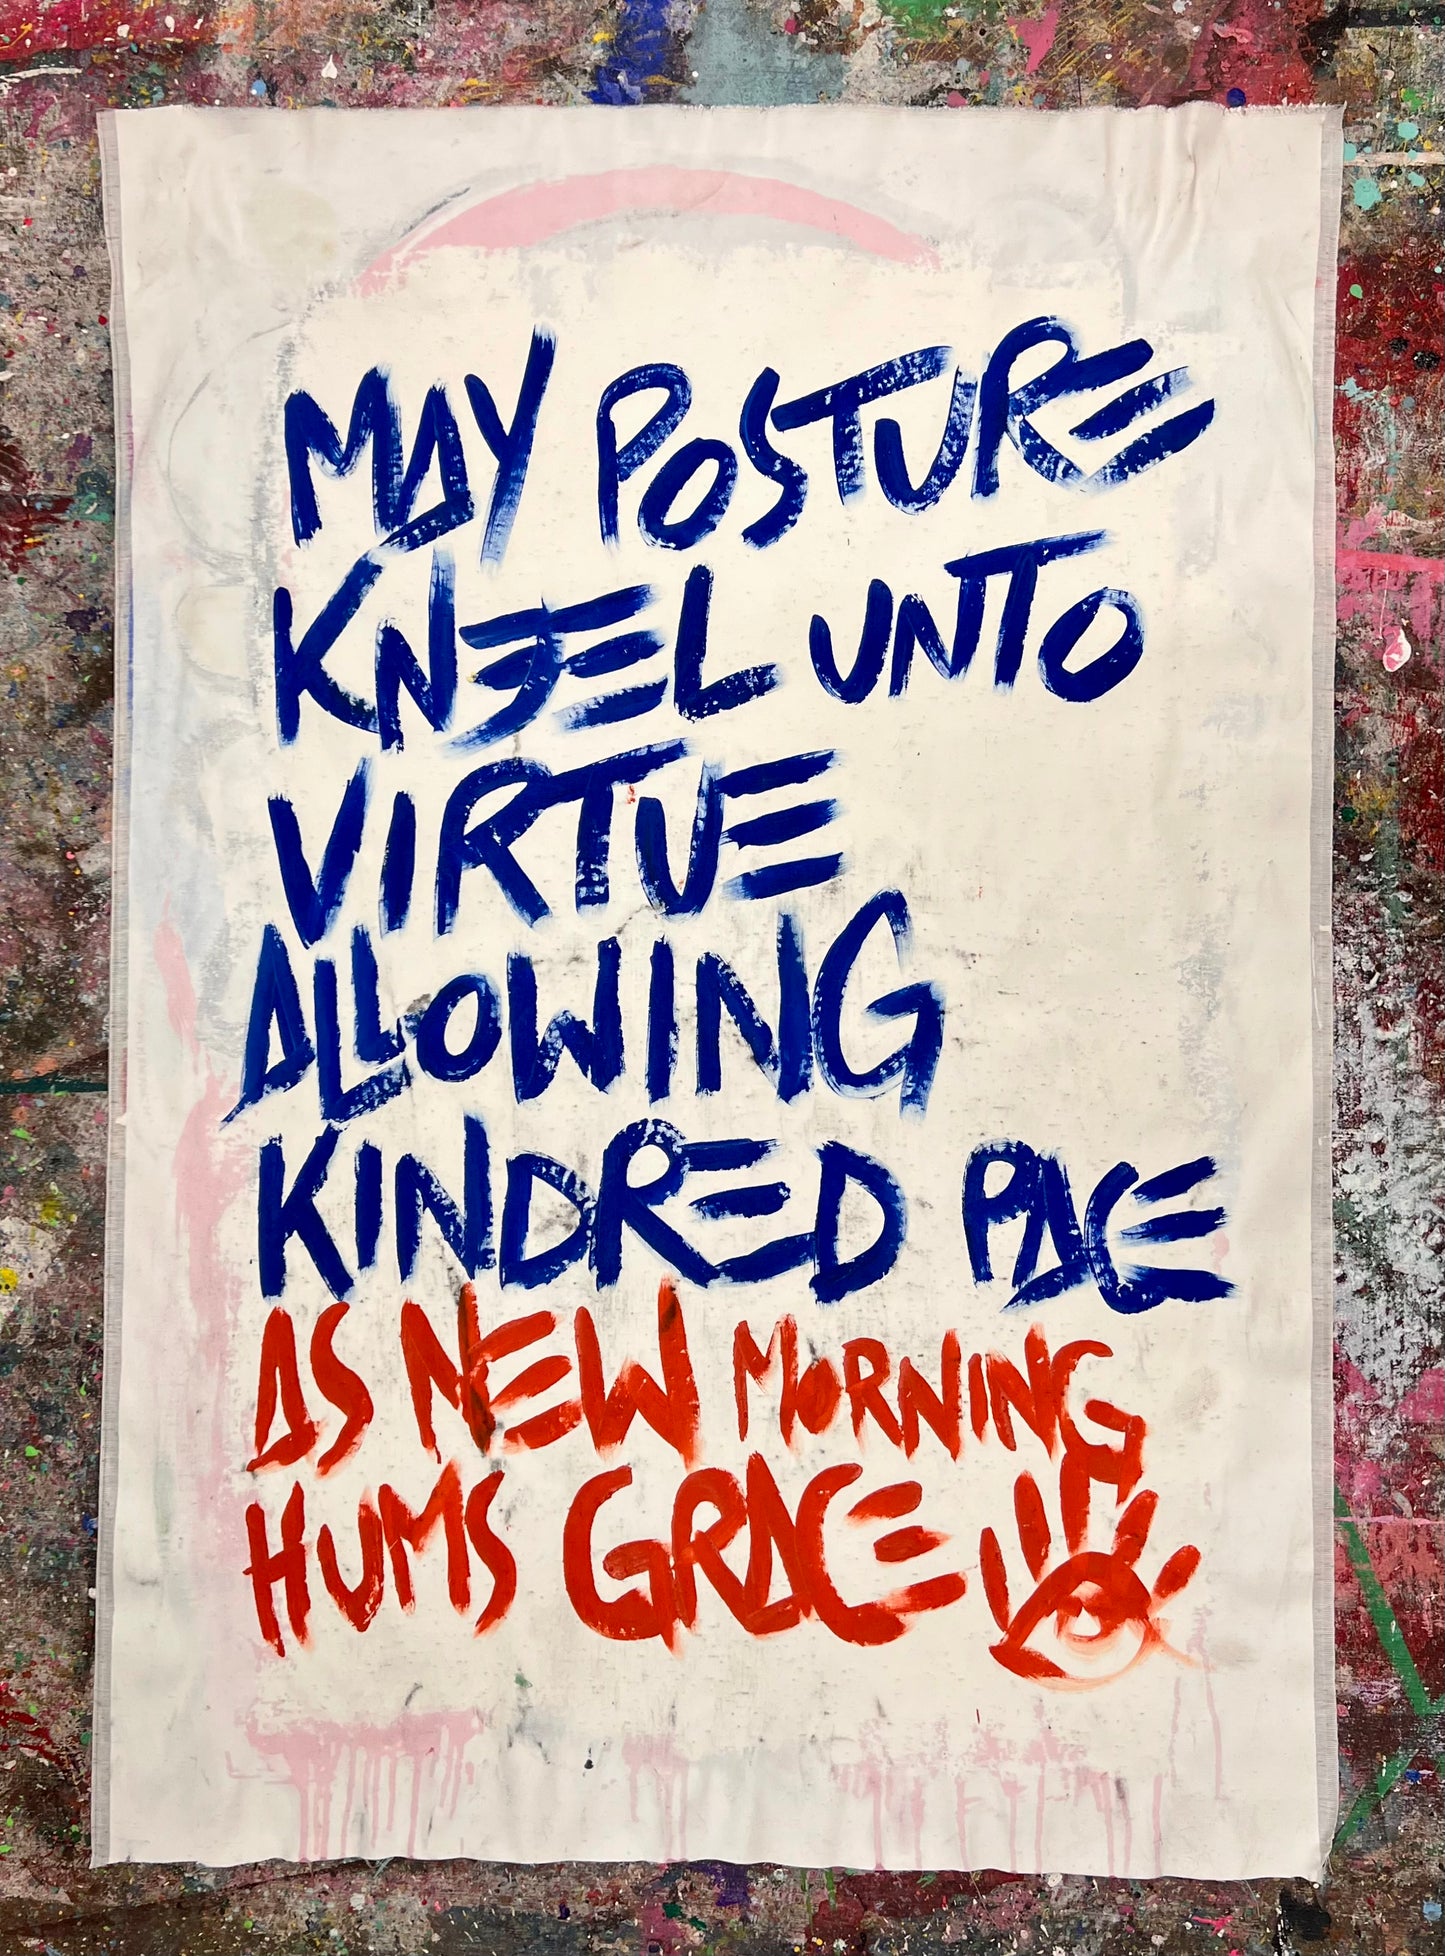 MAY POSTURE
KNEEL UNTO
VIRTUE
ALLOWING
KINDRED PACE
AS NEW MORNING
HUMS GRACE